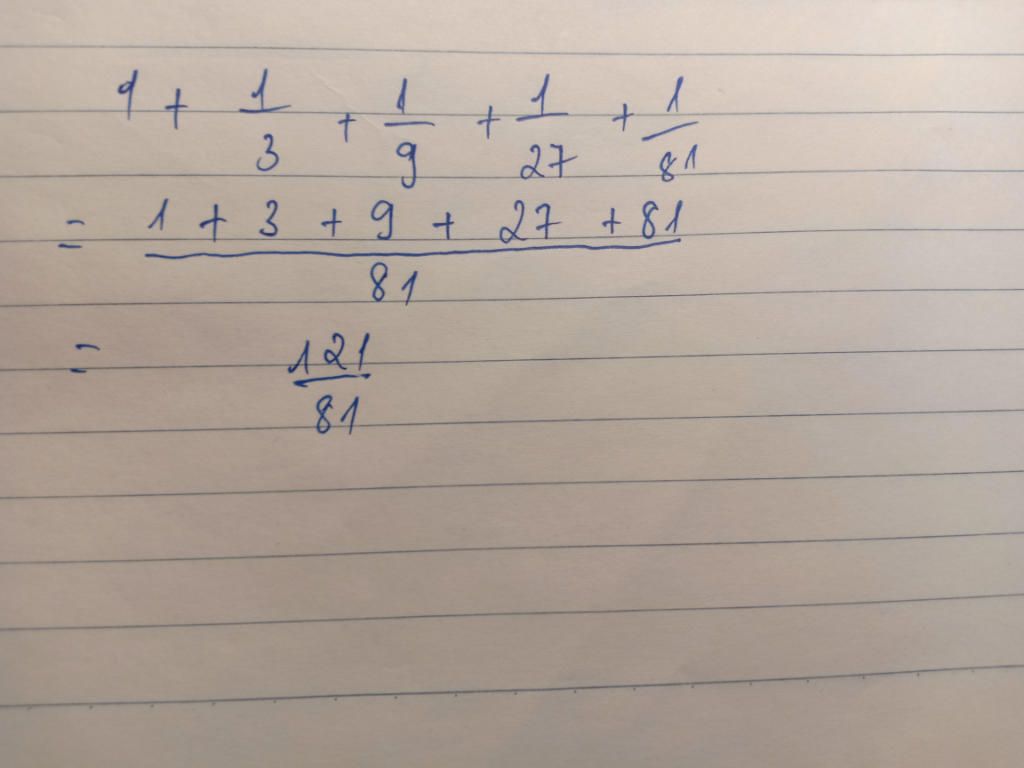 1 + 1/3 + 1/9 + 1/27 + 1/81
= (1 + 3 + 9 + 27 + 81)/81
= 121/81